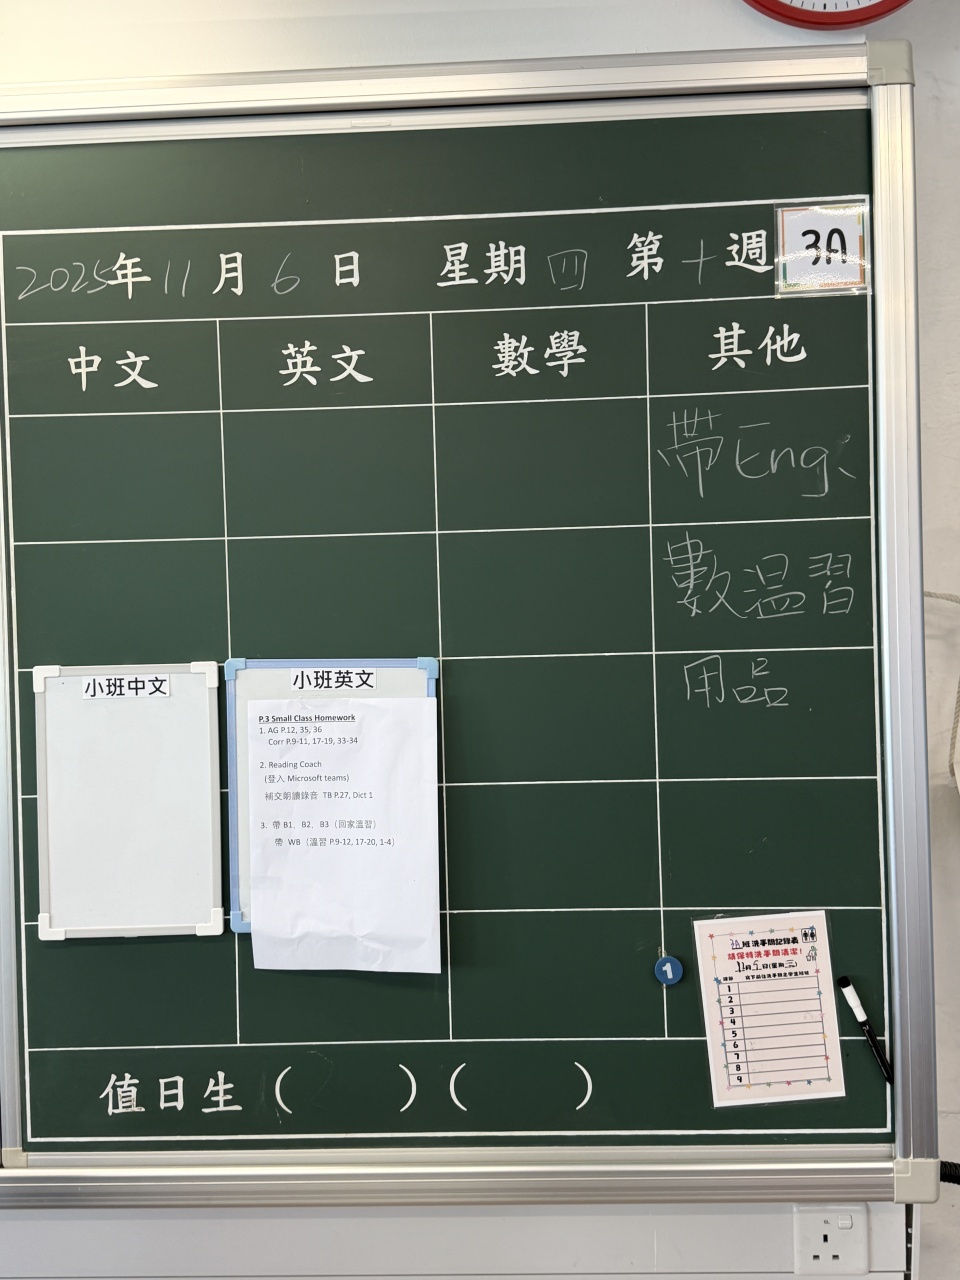 2025年11月6日 星期四 第十週 3A
中文 英文 數學 其他
帶Eng、
數溫習
用品
小班中文
小班英文
P.3 Small Class Homework
1. AG P.12, 35, 36
Corr P.9-11, 17-19, 33-34
2. Reading Coach
(登入 Microsoft teams)
補交朗讀錄音 TB P.27, Dict 1
3. 帶 B1、B2、B3（回家溫習）
帶 WB（溫習 P.9-12, 17-20, 1-4）
1
3A班洗手間記錄表
請保持洗手間清潔！
11月5日(星期三)
1
2
3
4
5
6
7
8
9
值日生（ ）（ ）